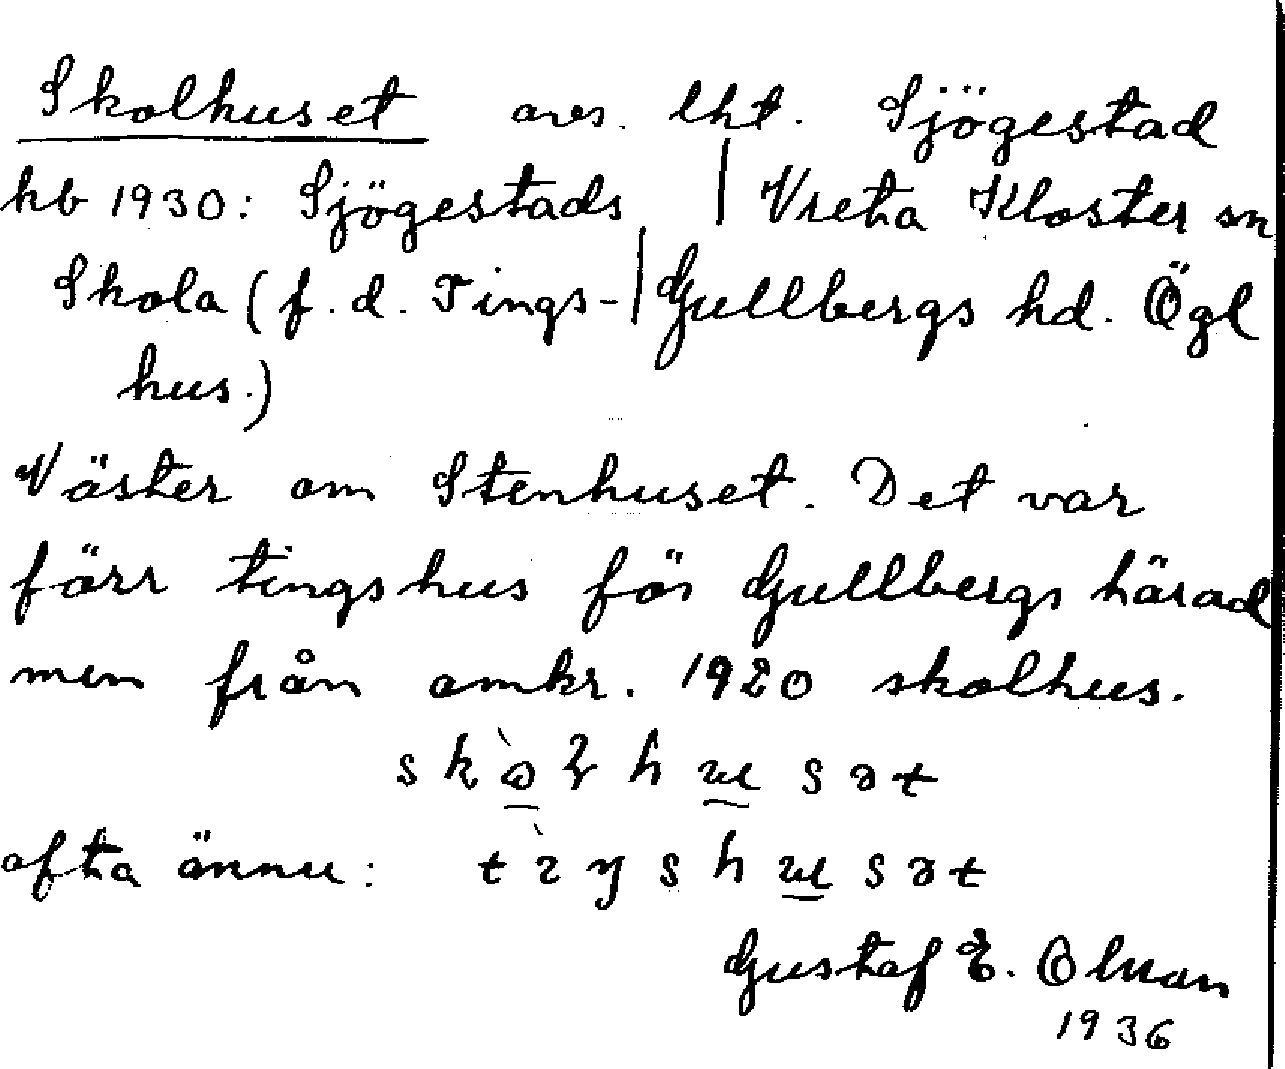 Skolhuset avs. lht. Sjögestad
hb 1930: Sjögestads | Vreta Kloster sn
Skola (f.d. Tings-| Gullbergs hd. Ögl
hus.)
Väster om Stenhuset. Det var
förr tingshus för Gullbergs härad
men från omkr. 1920 skolhus.
ofta ännu:
Gustaf E.
1936